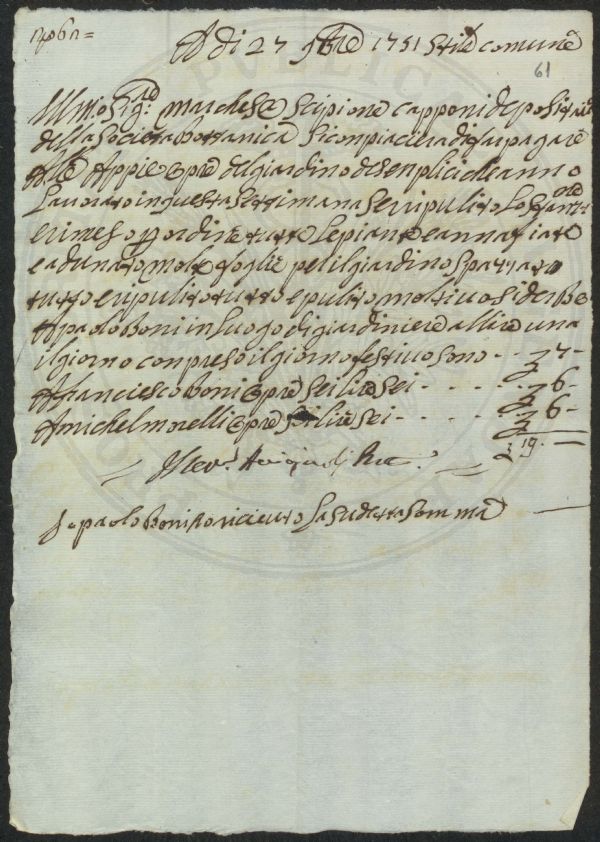 A di 27 9bre 1751 stile comune
61
Ill.mo Sig.re marchese scipione capponi depositario
della società bottanica si compiacera da far pagare
Alle Appie opre del giardino de senplici che anno
Lavorato in questa settimana se ripulito Lo stantone
e rimeso p ordine tutte Le piante e annafiate
e adunato molte foglie pe il giardino spazzato
tutto e ripulito tutto e pulito molti vosi der Be
A paolo Boni in luogo di giardiniere a llire una
il giorno conpreso il giorno festivo sono - - 7 -
A franciesco Boni opre sei lire sei - - - - - 6 -
A michel morelli opre sei lire sei - - - - 6 -
19. -
Io paolo Boni o riceuto la sudetta somma